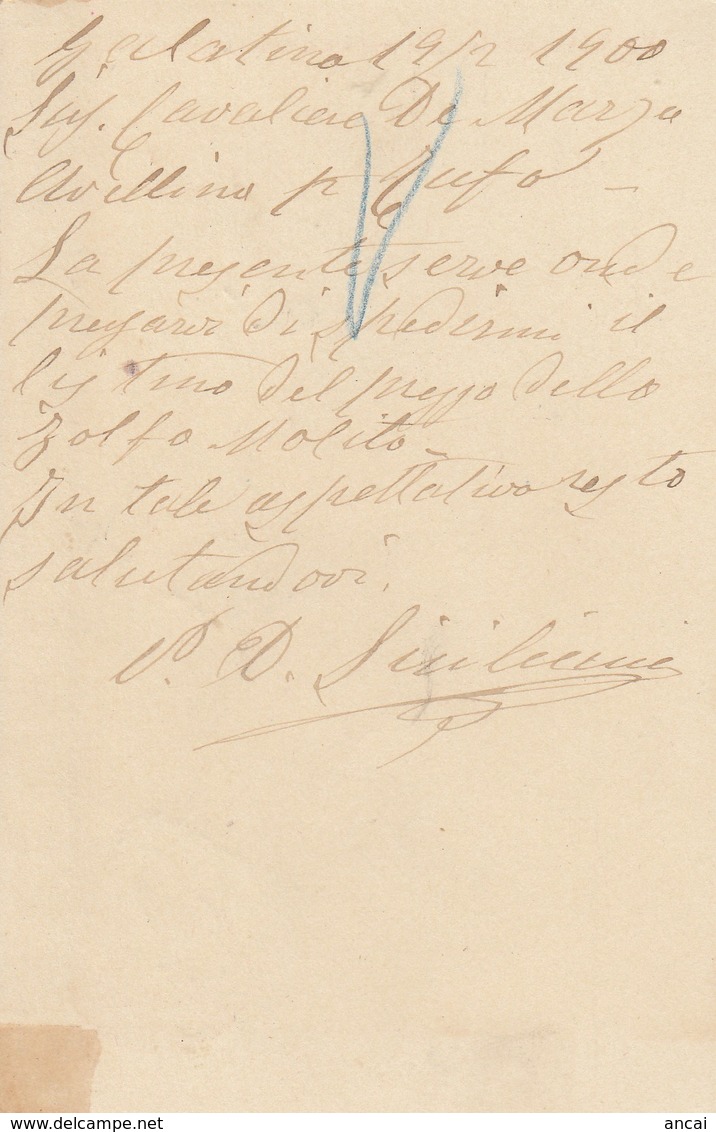 Galatina 19/2 1900
Sig. Cavaliere Di Marzo
Avellino p Tufo –
La presente serve onde
pregarvi di spedirmi il
listino del prezzo dello
Zolfo Molito
In tale aspettativa resto
salutandovi.
D. Siciliani
www.delcampe.net
ancai